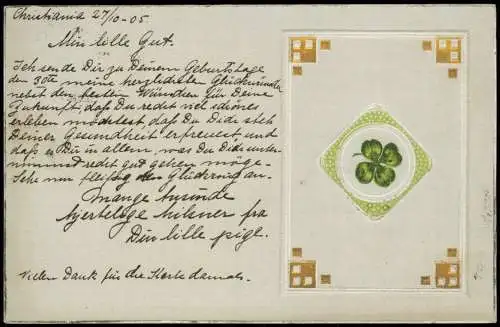 Christiania 27/10-05.
Min lille Gut.
Ich sende Dir zu Deinem Geburtstage
den 30te meine herzlichsten Glückwünsche
nebst den besten Wünschen für Deine
Zukunft, daß Du recht viel schönes
erleben möchtest daß Du Dich stets
Deiner Gesundheit erfreuest und
daß es Du in allem, was Du Dir unter-
nimmst recht gut gehen möge.
Sehe nur fleißig den Glücksring an.
Mange tusinde
hjertelige hilsner fra
Din lille pige.
Vielen Dank für die Karte damals.